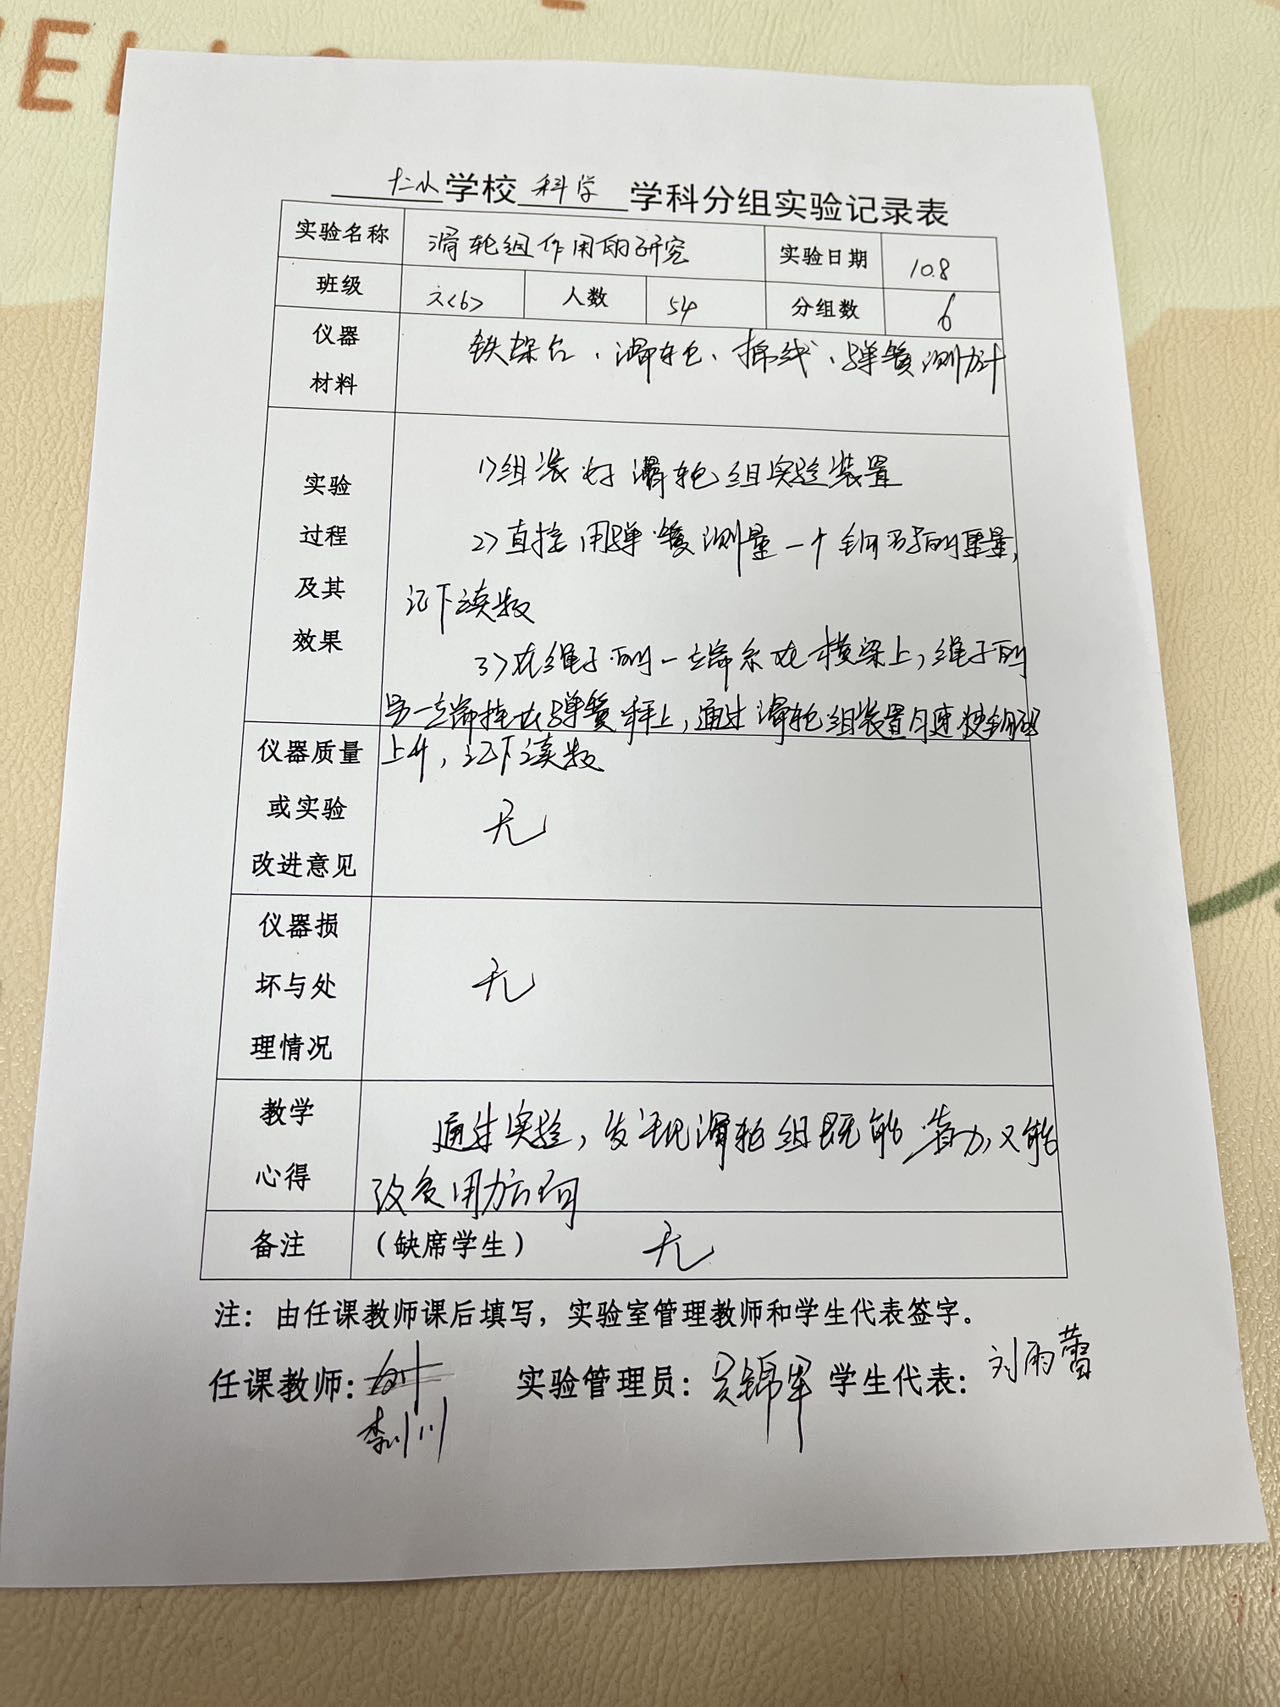 HELLO
十二小学校 科学 学科分组实验记录表
实验名称 滑轮组作用的研究 实验日期 10.8
班级 六<6> 人数 54 分组数 6
仪器材料 铁架台、滑轮、棉线、弹簧测力计
实验过程及其效果
1>组装好滑轮组实验装置
2>直接用弹簧测量一个钩码的重量,
记下读数
3>在绳子的一端系在横梁上,绳子的
另一端挂在弹簧秤上,通过滑轮组装置匀速使钩码
上升,记下读数
仪器质量或实验改进意见 无
仪器损坏与处理情况 无
教学心得 通过实验,发现滑轮组既能省力,又能
改变用力方向
备注 (缺席学生) 无
注：由任课教师课后填写，实验室管理教师和学生代表签字。
任课教师： 实验管理员：吴锦军 学生代表：刘雨蕾
李川